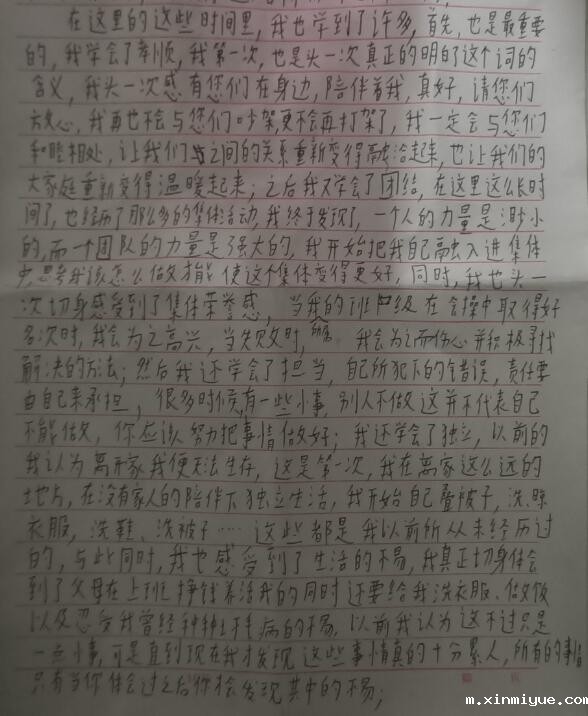 在这里的这些时间里，我也学到了许多，首先，也是最重要
的，我学会了孝顺，我第一次，也是头一次真正的明白了这个词的
含义，我头一次感有您们在身边，陪伴着我，真好，请您们
放心，我再也不会与您们吵架，更不会再打架了，我一定会与您们
和睦相处，让我们与之间的关系重新变得融洽起来，也让我们的
大家庭重新变得温暖起来；之后我又学会了团结，在这里这么长时
间了，也经历了那么多的集体活动，我终于发现了，一个人的力量是渺小
的，而一个团队的力量是强大的，我开始把我自己融入进集体
思考我该怎么做才能使这个集体变得更好，同时，我也头一
次切身感受到了集体荣誉感，当我的班级在会操中取得好
名次时，我会为之高兴，当失败时，我会为之而伤心并积极寻找
解决的方法；然后我还学会了担当，自己所犯下的错误，责任要
由自己来承担，很多时候，有一些小事，别人不做这并不代表自己
不能做，你应该努力把事情做好；我还学会了独立，以前的
我认为离开家我便无法生存，这是第一次，我在离家这么远的
地方，在没有家人的陪伴下独立生活，我开始自己叠被子，洗、晾
衣服，洗鞋、洗被子……这些都是我以前所从未经历过
的，与此同时，我也感受到了生活的不易，我真正切身体会
到了父母在上班挣钱养活我的同时还要给我洗衣服、做饭
以及忍受我曾经种种坏毛病的不易，以前我认为这不过只是
一点小事，可是直到现在我才发现这些事情真的十分累人，所有的事情
只有当你体会过之后你才会发现其中的不易；
m.xinmiyue.com